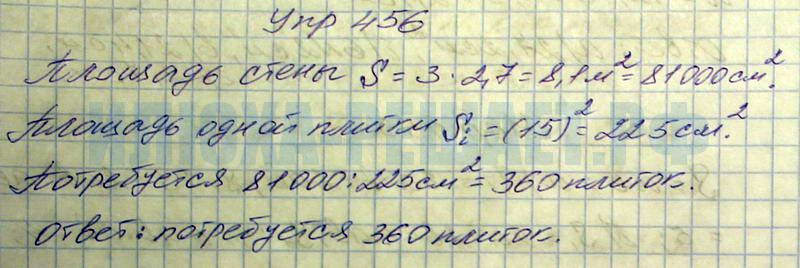 Упр 456
Площадь стены S = 3 · 2,7 = 8,1 м² = 81000 см².
Площадь одной плитки Si = (15)² = 225 см.²
Потребуется 81000 : 225 см² = 360 плиток.
Ответ: потребуется 360 плиток.